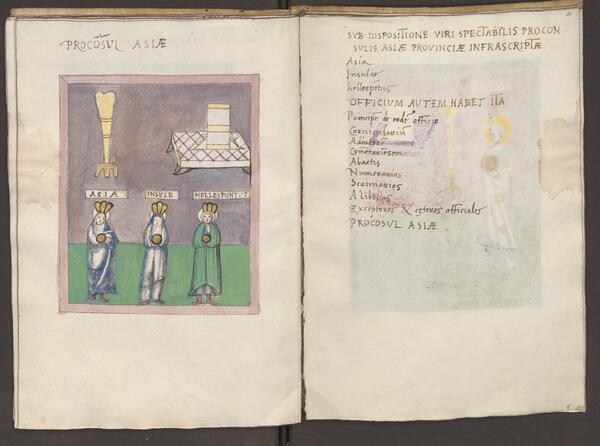 PROCŌSUL ASIÆ
ASIÆ
INSULÆ
HELLESPONTVS
SVB DISPOSITIONE VIRI SPECTABILIS PROCON
SULIS ASIÆ PROVINCIÆ INFRASCRIPTÆ
Asia
Insulae
hellespōtus
OFFICIUM AVTEM HABET ITA
Principē de eodē officio
Corniculariū
Adiutorē
Cōmētariensem
Abactis
Numerarios
Scriniarios
A libellis
Exceptores & cęteros officiales
PROCŌSUL ASIÆ